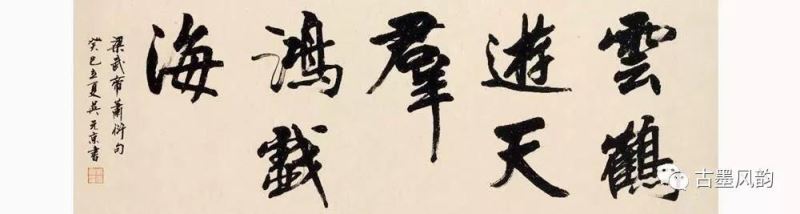 雲鶴
遊天
羣
鴻戲
海
梁武帝蕭衍句
癸巳立夏吳元京書
古墨风韵